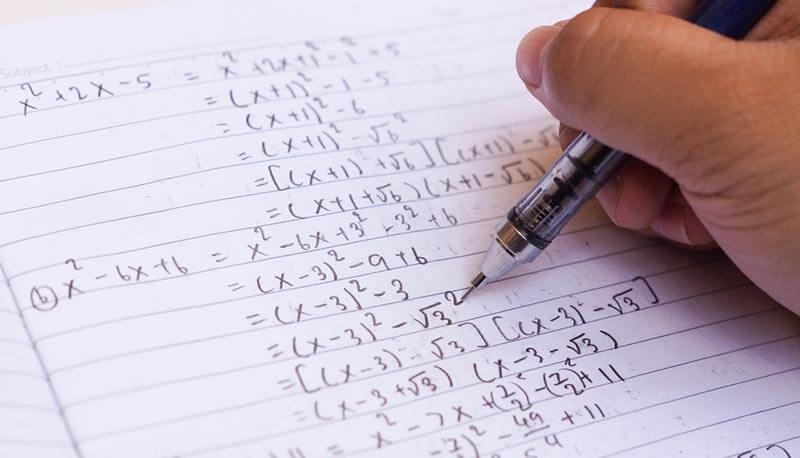 Subject :
x² + 2x - 5 = x² + 2x + 1² - 1² - 5
= (x+1)² - 1 - 5
= (x+1)² - 6
= (x+1)² - √6²
= [(x+1)² + √6] [(x+1) - √6
= (x+1+√6) (x+1-√6)
(b) x² - 6x + 6 = x² - 6x + 3² - 3² + 6
= (x-3)² - 9 + 6
= (x-3)² - 3
= (x-3)² - √3²
= [(x-3) - √3] [(x-3) - √3]
= (x-3+√3) (x-3-√3)
= x² - 7x + (7/2)² - (7/2)² + 11
)² - 49/ + 11